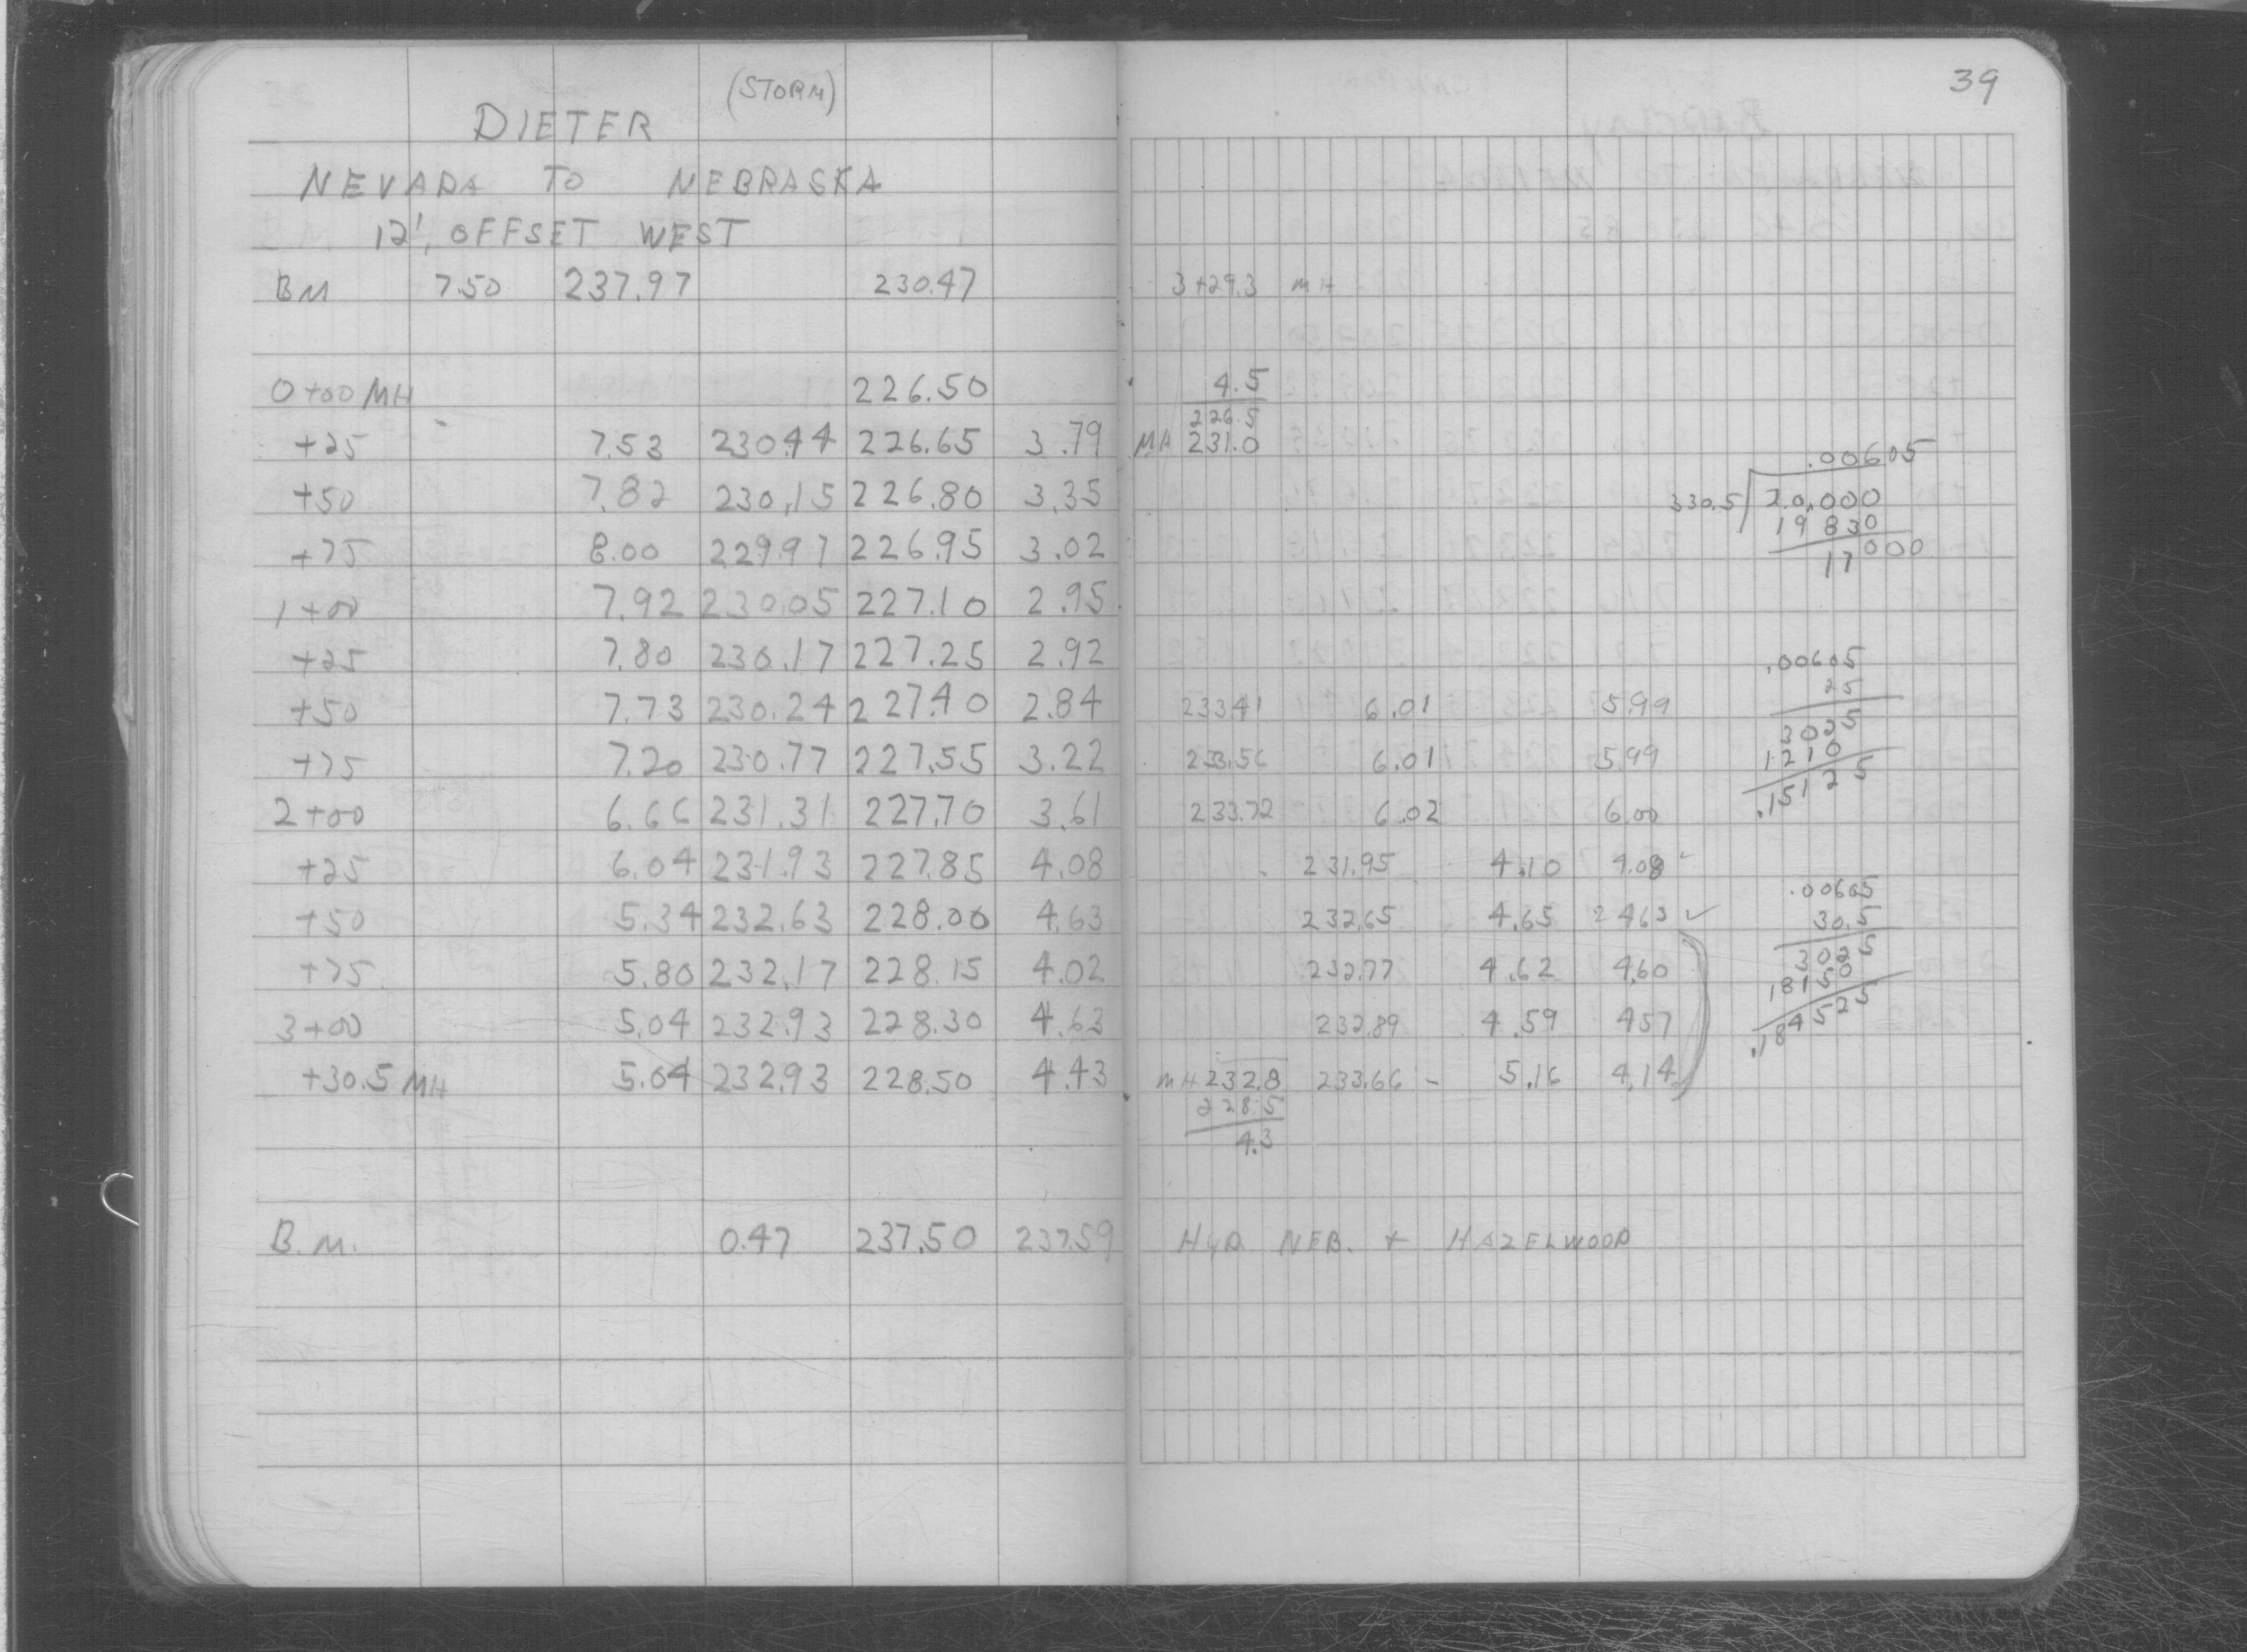 (STORM)
DIETER
NEVADA TO NEBRASKA
12', OFFSET WEST
BM 7.50 237.97 230.47
0+00 MH 226.50
+25 7.53 230.44 226.65 3.79
+50 7.82 230.15 226.80 3.35
+75 8.00 229.97 226.95 3.02
1+00 7.92 230.05 227.10 2.95
+25 7.80 230.17 227.25 2.92
+50 7.73 230.24 227.40 2.84
+75 7.20 230.77 227.55 3.22
2+00 6.66 231.31 227.70 3.61
+25 6.04 231.93 227.85 4.08
+50 5.34 232.63 228.00 4.63
+75 5.80 232.17 228.15 4.02
3+00 5.04 232.93 228.30 4.63
+30.5 MH 5.04 232.93 228.50 4.43
B.M. 0.47 237.50 237.59
39
3+29.3 MH
4.5
226.5
MH 231.0
233.41 6.01 5.99
233.56 6.01 5.99
233.72 6.02 6.00
231.95 4.10 4.08
232.65 4.65 2 463 ✓
232.77 4.62 4.60
232.89 4.59 457
MH 232.8 233.66 - 5.16 4.14
228.5
4.3
HYD NEB. + HAZELWOOD
.00605
330.5 20.000
19 830
17000
.00605
25
3025
1210
.15125
.00605
30.5
3025
18150
.184525